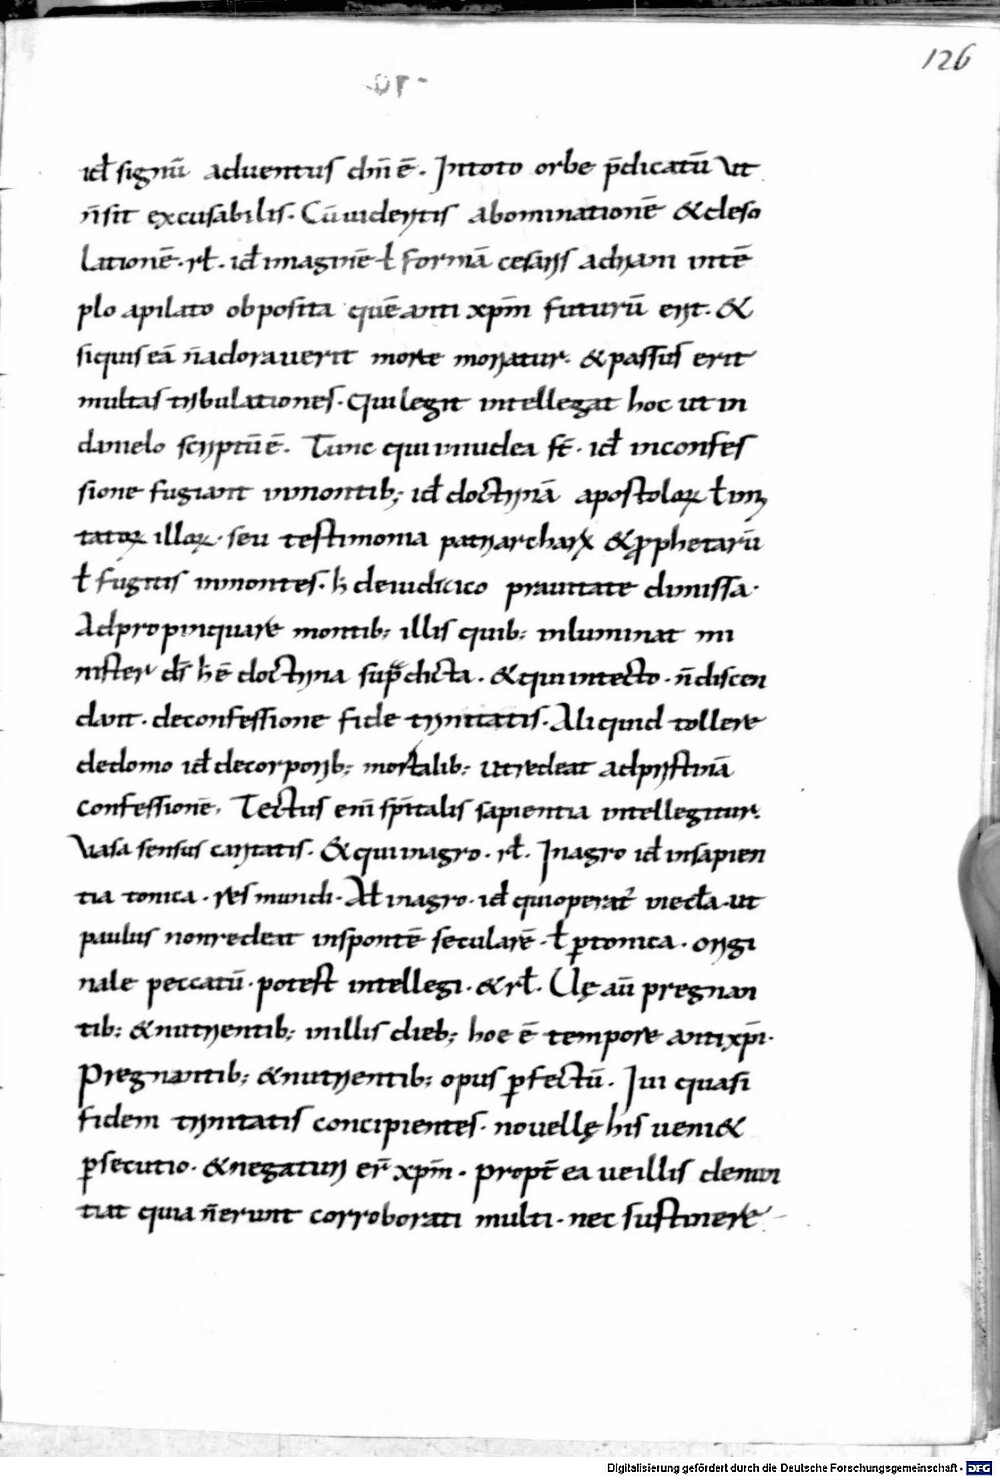 126
id̄ signū aduentus dn̄i ē. Intoto orbe p̄dicatū Ut
n̄sit excusabilis. Cū uidentis abominationē &deso
lationē. rł. id̄ imaginē ł formā cesaris adriani intē
plo apilato obposita quē anti xp̄m futurū erit. &
siquis eā n̄adorauerit morte moriatur. &passus erit
multas tribulationes. Qui legit intellegat hoc ut in
danielo scriptū ē. Tunc qui iniudea st̄. id̄ inconfes
sione fugiant inmontib; id̄ doctrinā apostoloꝝ ł
tatoꝝ illoꝝ. seu testimonia patriarchaꝝ &ꝓphetarū
ł fugitis inmontes. deiudicico prauitate dimissa.
Adpropinquare montib; illis quib; inluminat mi
nister dī h̄ ē doctrina sup̄dicta. &qui intecto. n̄discen
dant. deconfessione fide trinitatis. Aliquid tollere
dedomo id̄ decorporib; mortalib; utredeat adpristinā
confessionē. Tectus enī sp̄italis sapientia intellegitur.
Uasa sensus caritatis. &qui inagro. rł. Inagro id̄ insapien
tia tonica. res mundi. Ał inagro. id̄ quioperat᷑ ineccła. ut
paulus nonredeat insponte᷑ secularē. ł ꝑtonica. origi
nale peccatū. potest intellegi. &rł. Uę aū pregnan
tib; &nutrientib; inillis dieb; hoc ē tempore antixp̄i.
Pregnantib; &nutrientib; opus ꝑfectū. Iui quasi
fidem trinitatis concipientes. nouellę his ueni&
ꝑsecutio. &negaturi er̄ xp̄m. propt̄ ea ueillis denun
tiat quia n̄erunt corroborati multi. nec sustinere
Digitalisierung gefördert durch die Deutsche Forschungsgemeinschaft - DFG